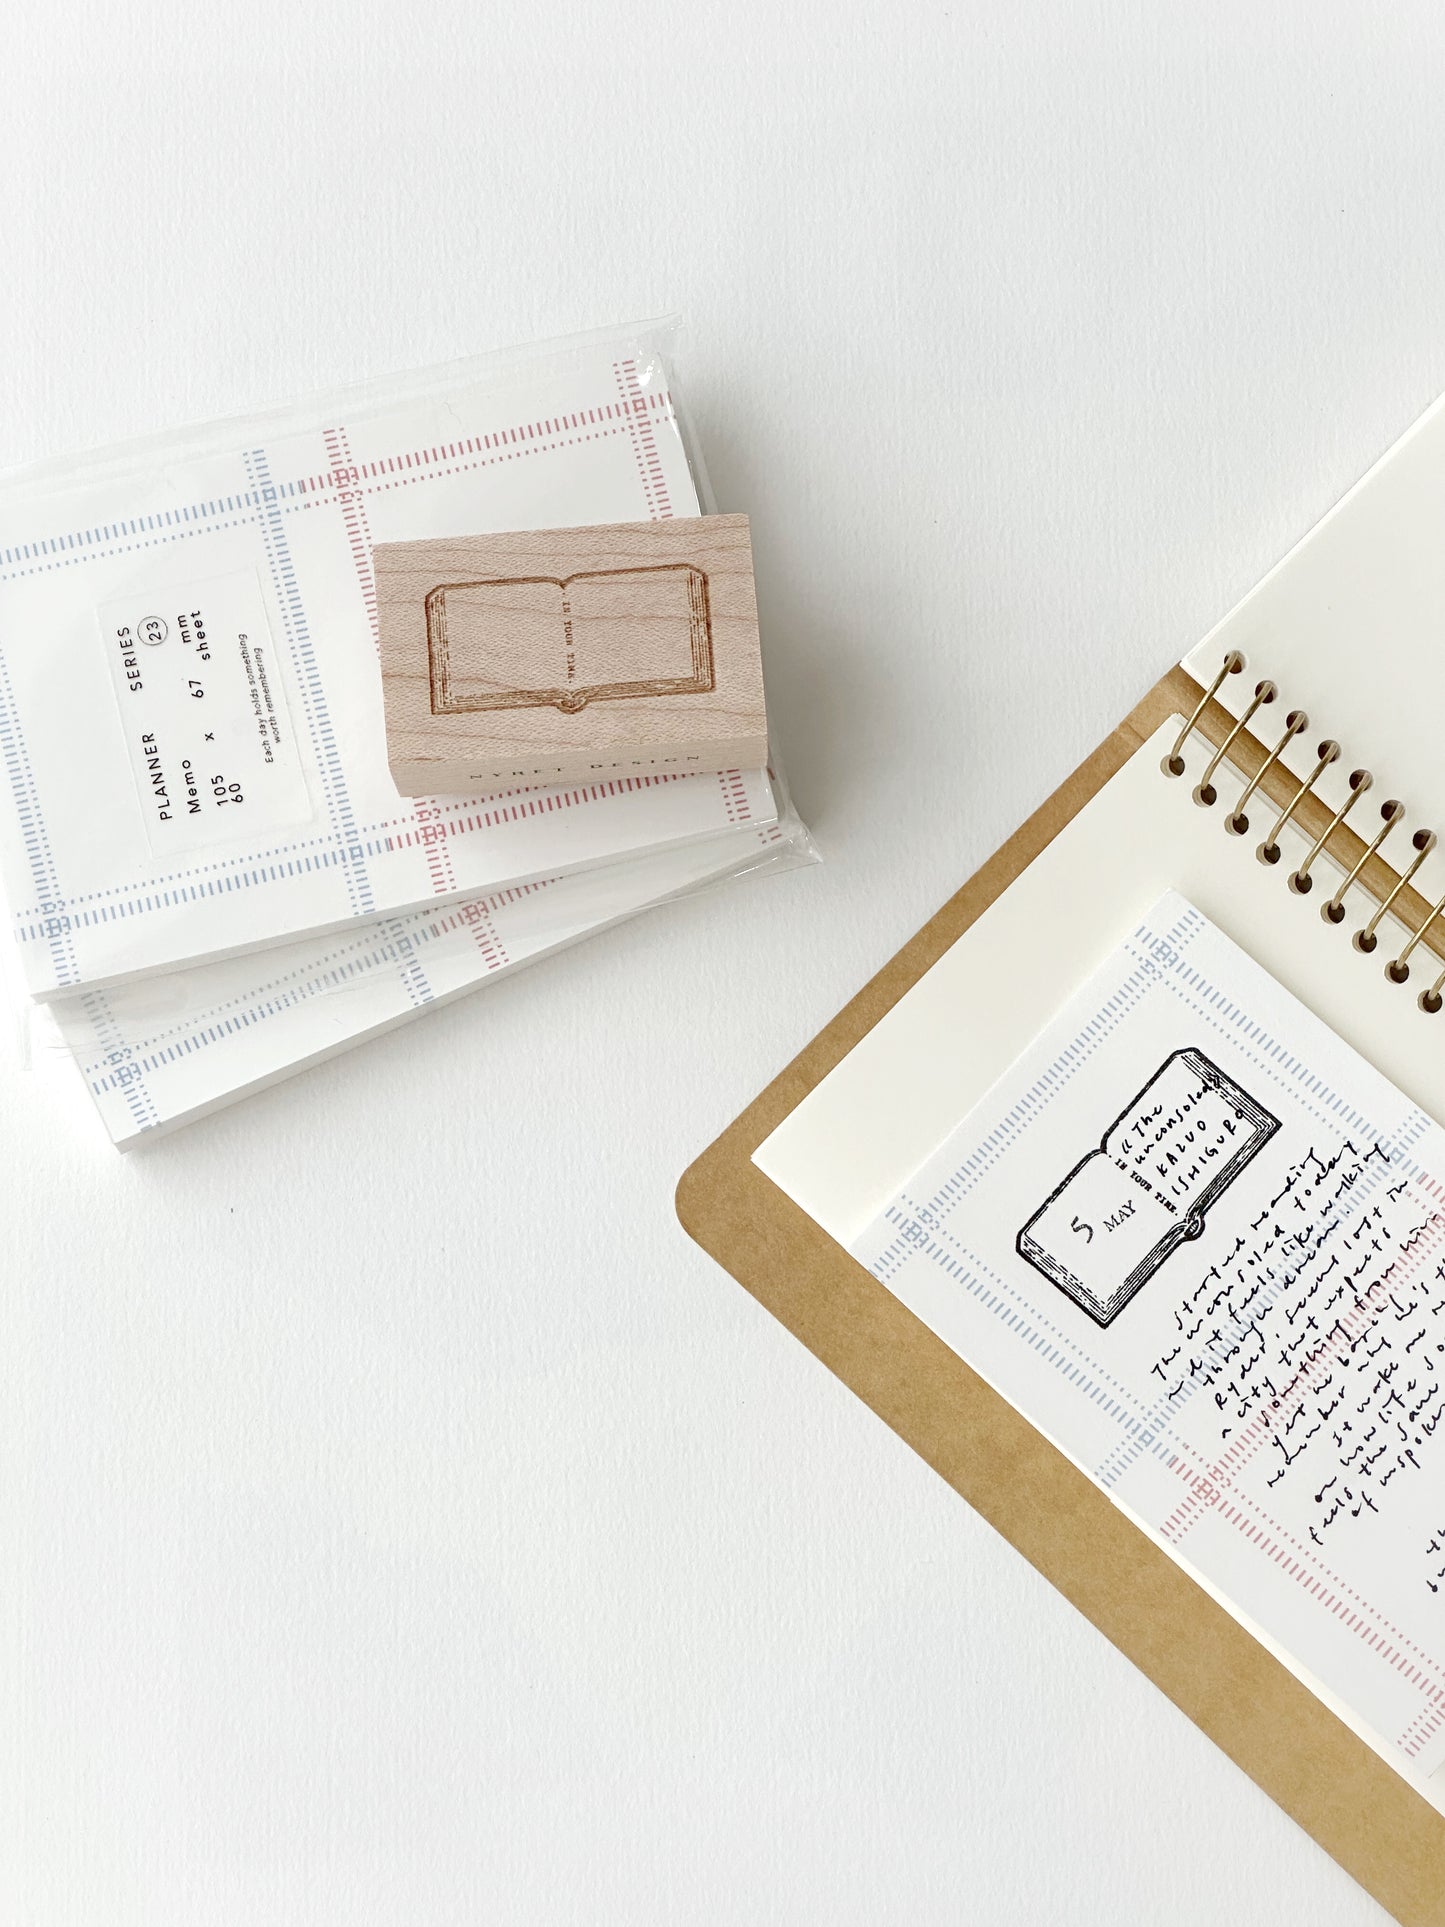 PLANNER SERIES
Memo 23
105 x 67 mm
60 sheet
Each day holds something
worth remembering
IN YOUR TIME.
NYRET DESIGN
« The
unconsoled»
KAZUO
ISHIGURO
IN YOUR TIME.
5
MAY
started reading
The unconsoled today
and it feels like walking
through a dream.
Ryder, seems lost in
a city that expects
something from him
yet he
number why he's
It make me
on how life so
feels the same
of unspoken